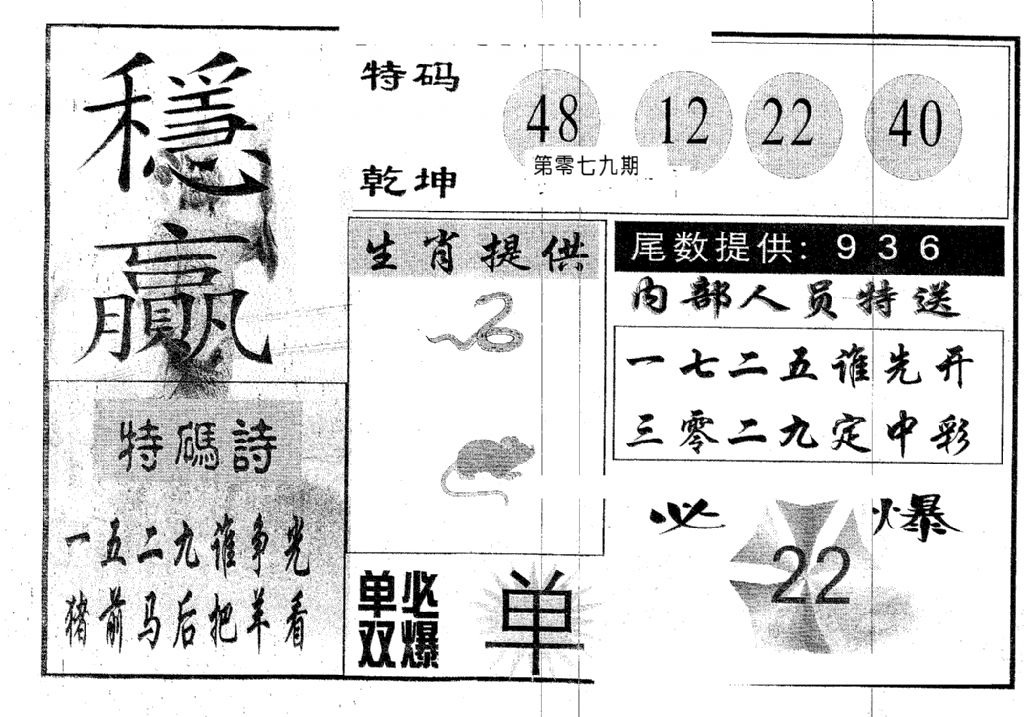 穩贏
特码
48 12 22 40
第零七九期
乾坤
生肖提供
尾数提供: 9 3 6
内部人员特送
一七二五谁先开
三零二九定中彩
特碼詩
一五二九谁争光
猪前马后把羊看
单双必爆
单
必爆
22